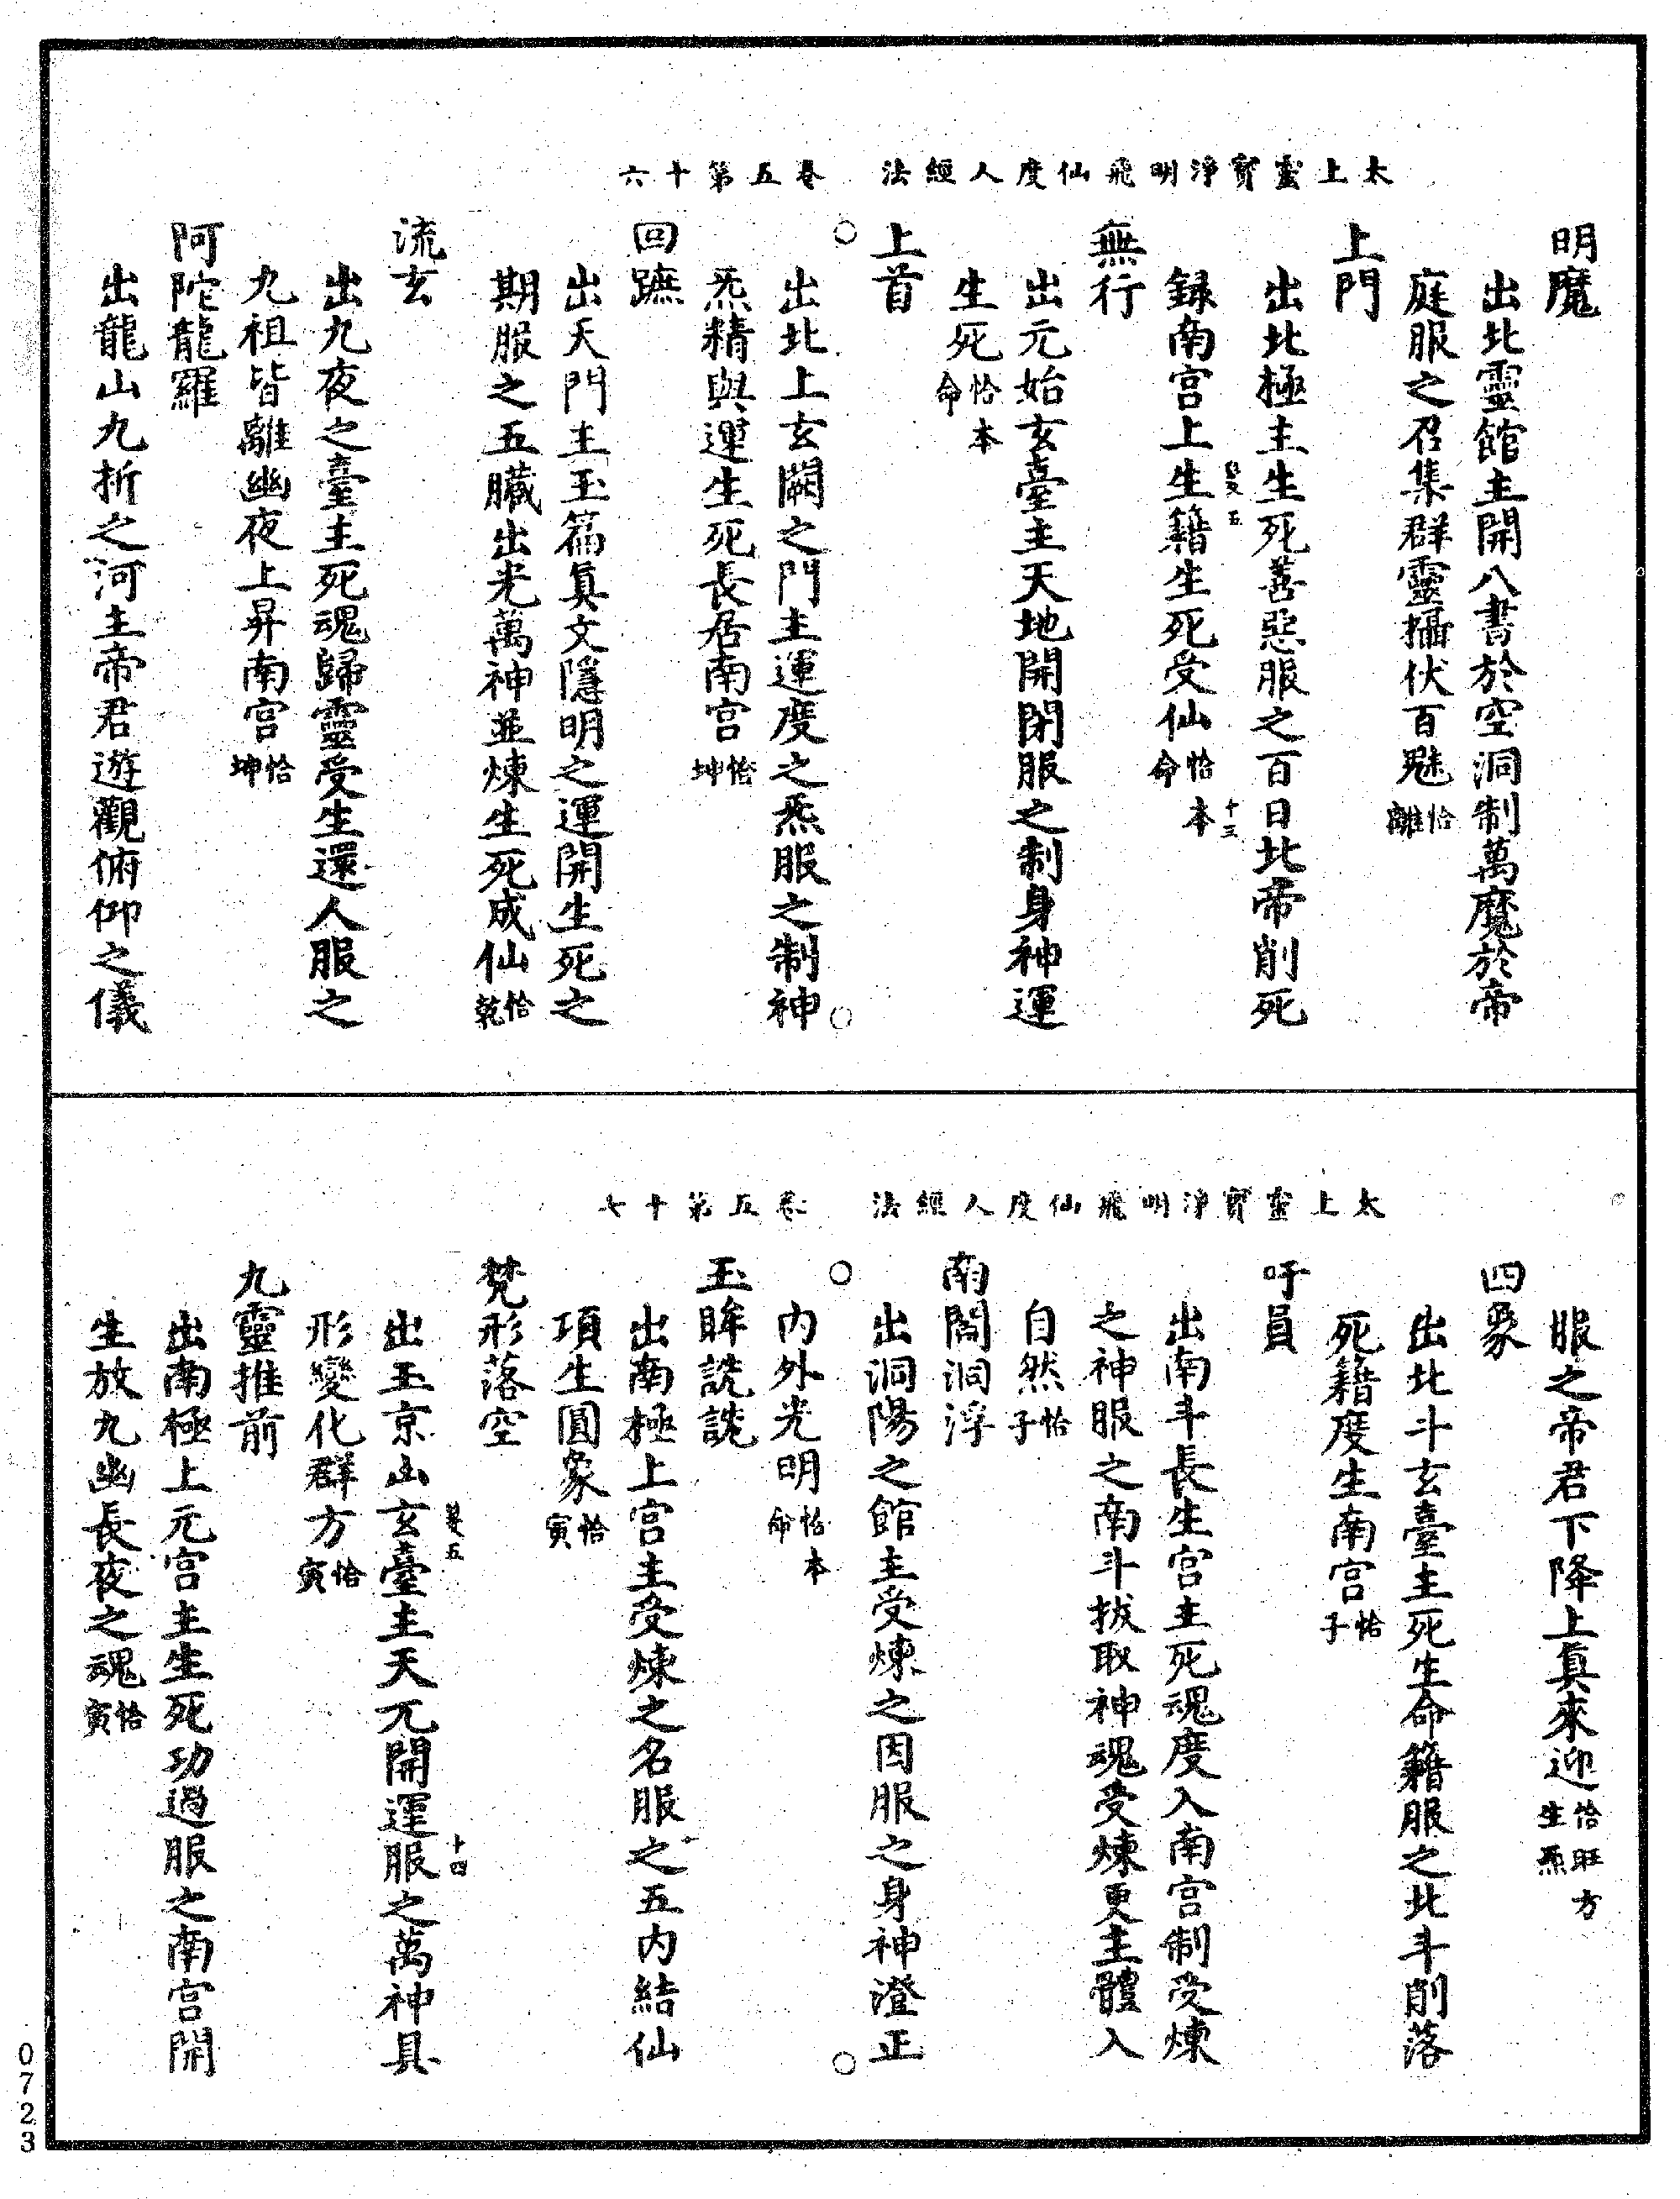 太上靈寶淨明飛仙度人經法　卷五第十六
明魔
出北靈館主開八書於空洞制萬魔於帝
庭服之召集群靈攝伏百魅恰離
上門
出北極主生死善惡服之百日北帝削死
十三
録南宫上生籍生死受仙恰本命
無行
出元始玄臺主天地開閉服之制身神運
生死恰本命
上首
出北上玄闕之門主運度之炁服之制神
炁精與運生死長居南宫恰坤
回蹠
出天門主玉篇眞文隱明之運開生死之
期服之五臟出光萬神並煉生死成仙恰乾
流玄
出九夜之臺主死魂歸靈受生還人服之
九祖皆離幽夜上昇南宫恰坤
阿陀龍羅
出龍山九折之河主帝君遊觀俯仰之儀
太上靈寶淨明飛仙度人經法　卷五第十七
服之帝君下降上眞來迎恰旺方生炁
四象
出北斗玄臺主死生命籍服之北斗削落
死籍度生南宫恰子
吁員
出南斗長生宫主死魂度入南宫制受煉
之神服之南斗拔取神魂受煉更生體入
自然恰子
南閻洞浮
出洞陽之館主受煉之因服之身神澄正
内外光明恰本命
玉眸詵詵
出南極上宫主受煉之名服之五内結仙
項生圓象恰寅
梵形落空
十四
出玉京山玄臺主天元開運服之萬神具
形變化群方恰寅
九靈推前
出南極上元宫主生死功過服之南宫開
生放九幽長夜之魂恰寅
0723